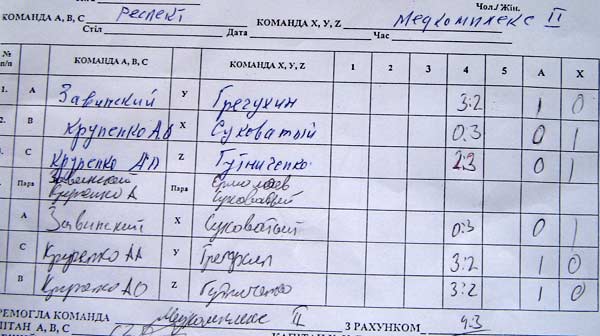 Чол./Жін.
КОМАНДА А, В, С Респект КОМАНДА X, Y, Z Медкомплекс II
Стіл Дата Час
№ п/п КОМАНДА А, В, С КОМАНДА X, Y, Z 1 2 3 4 5 А Х
1. А Завинский У Грегухин 3:2 1 0
2. В Крупенко АО Х Суковатый 0:3 0 1
3. С Крупенко АП Z Гутниченко 2:3 0 1
Пара Завинский Пара Ермолаев
Крупенко А Суковатый
А Завинский X Суковатый 0:3 0 1
С Крупенко АА У 3:2 1 0
В Крупенко АО Z Гутниченко 3:2 1 0
РЕМОГЛА КОМАНДА Медкомплекс II З РАХУНКОМ 4:3
ПІТАН А, В, С